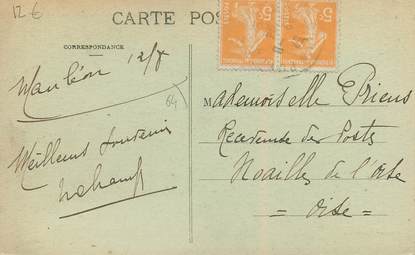 12 €
CARTE POS
CORRESPONDANCE
Mauléon 12/8
64
Meilleurs Souvenirs
5c 5c
POSTES POSTES
Mademoiselle Priens
Receveuse des Postes
Noailles de l'Oise
= Oise =